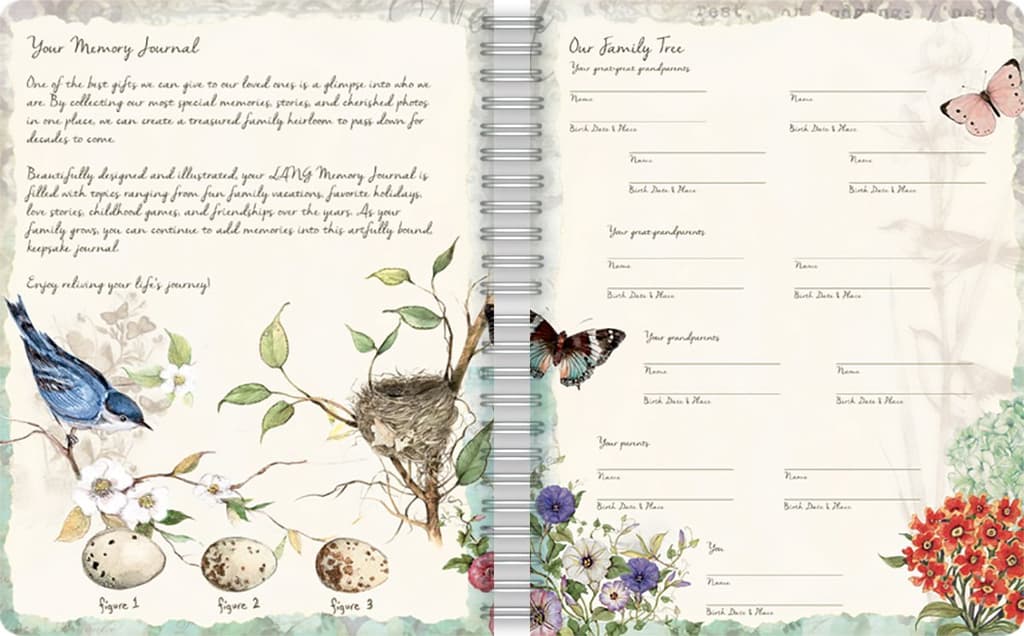 Your Memory Journal
One of the best gifts we can give to our loved ones is a glimpse into who we
are. By collecting our most special memories, stories, and cherished photos
in one place, we can create a treasured family heirloom to pass down for
decades to come.
Beautifully designed and illustrated, your LANG Memory Journal is
filled with topics ranging from fun family vacations, favorite holidays,
love stories, childhood games, and friendships over the years. As your
family grows, you can continue to add memories into this artfully bound,
keepsake journal.
Enjoy reliving your life's journey!
figure 1 figure 2 figure 3
Our Family Tree
Your great-great grandparents
Name Name
Birth Date & Place Birth Date & Place
Name Name
Birth Date & Place Birth Date & Place
Your great-grandparents
Name Name
Birth Date & Place Birth Date & Place
Your grandparents
Name Name
Birth Date & Place Birth Date & Place
Your parents
Name Name
Birth Date & Place Birth Date & Place
You
Name
Birth Date & Place